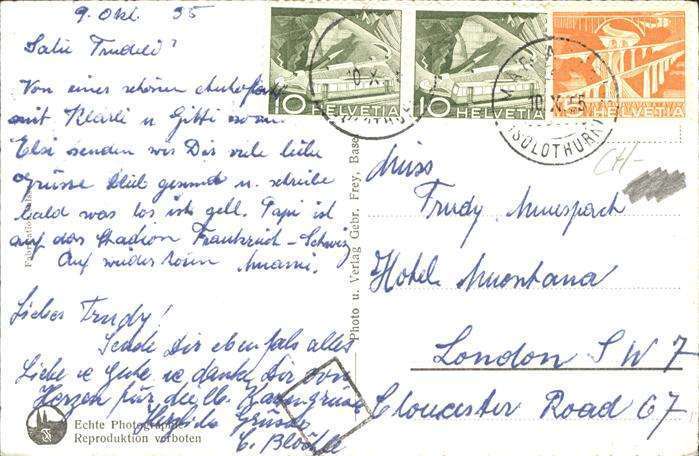 9. Okt. 55
Salü Trudeli!
Von einer schönen Autofahrt
mit Klärli u Gitti u von
Elsi senden wir Dir viele liebe
Grüsse bleib gesund u. schreibe
bald was los ist gell. Papi ist
auf das Stadion Frankreich-Schweiz
Auf wiedersehn Mammi.
Lieber Trudy!
Sende Dir ebenfals alles
Liebe u Gute u danke Dir von
Herzen für die lb. Kartengrüsse
Herzliche Grüsse
Echte Photographie
Reproduktion verboten
Photo u. Verlag Gebr. Frey, Basel
10 HELVETIA
10 HELVETIA
HELVETIA
10.X.55
(SOLOTHURN)
CH-
Miss
Trudy Muespach
Hotel Montana
London S W 7
Gloucester Road 67